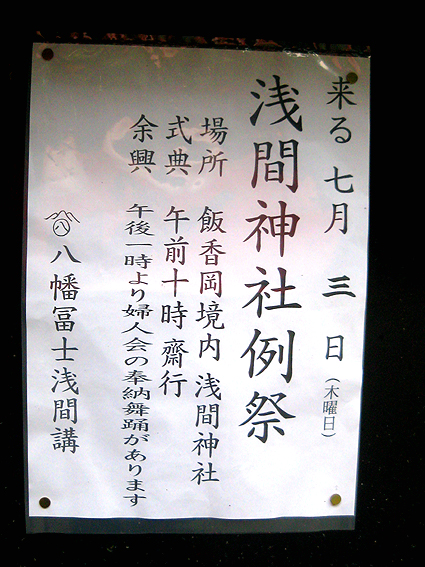 来る七月三日(木曜日)
浅間神社例祭
場所 飯香岡境内 浅間神社
式典 午前十時齋行
余興 午後一時より婦人会の奉納舞踊があります
八幡冨士浅間講